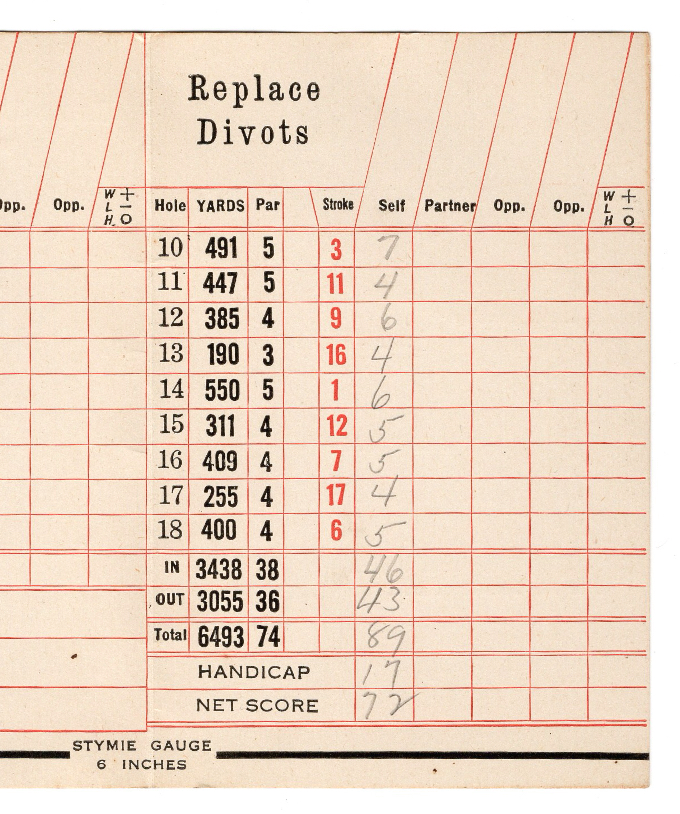 Replace
Divots
Opp. Opp. W + L – H. O Hole YARDS Par Stroke Self Partner Opp. Opp. W + L – H O
10 491 5 3 7
11 447 5 11 4
12 385 4 9 6
13 190 3 16 4
14 550 5 1 6
15 311 4 12 5
16 409 4 7 5
17 255 4 17 4
18 400 4 6 5
IN 3438 38 46
OUT 3055 36 43
Total 6493 74 89
HANDICAP 17
NET SCORE 72
STYMIE GAUGE
6 INCHES